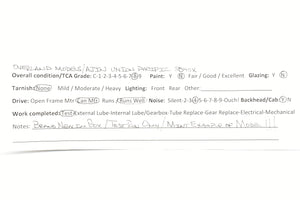 OVERLAND MODELS/AJIN UNION PACIFIC
Overall condition/TCA Grade: C-1-2-3-4-5-6-7-8-9 Paint: Y N Fair / Good / Excellent Glazing: Y N
Tarnish: None / Mild / Moderate / Heavy Lighting: Front Rear Other
Drive: Open Frame Mtr/Can MG Runs/Runs Well Noise: Silent-2-3-4-5-6-7-8-9-Ouch! Backhead/Cab: Y/N
Work completed: Test-External Lube-Internal Lube/Gearbox-Tube Replace-Gear Replace-Electrical-Mechanical
Notes: BRAND NEW IN BOX / TEST RUN ONLY / MINT EXAMPLE OF MODEL !!!